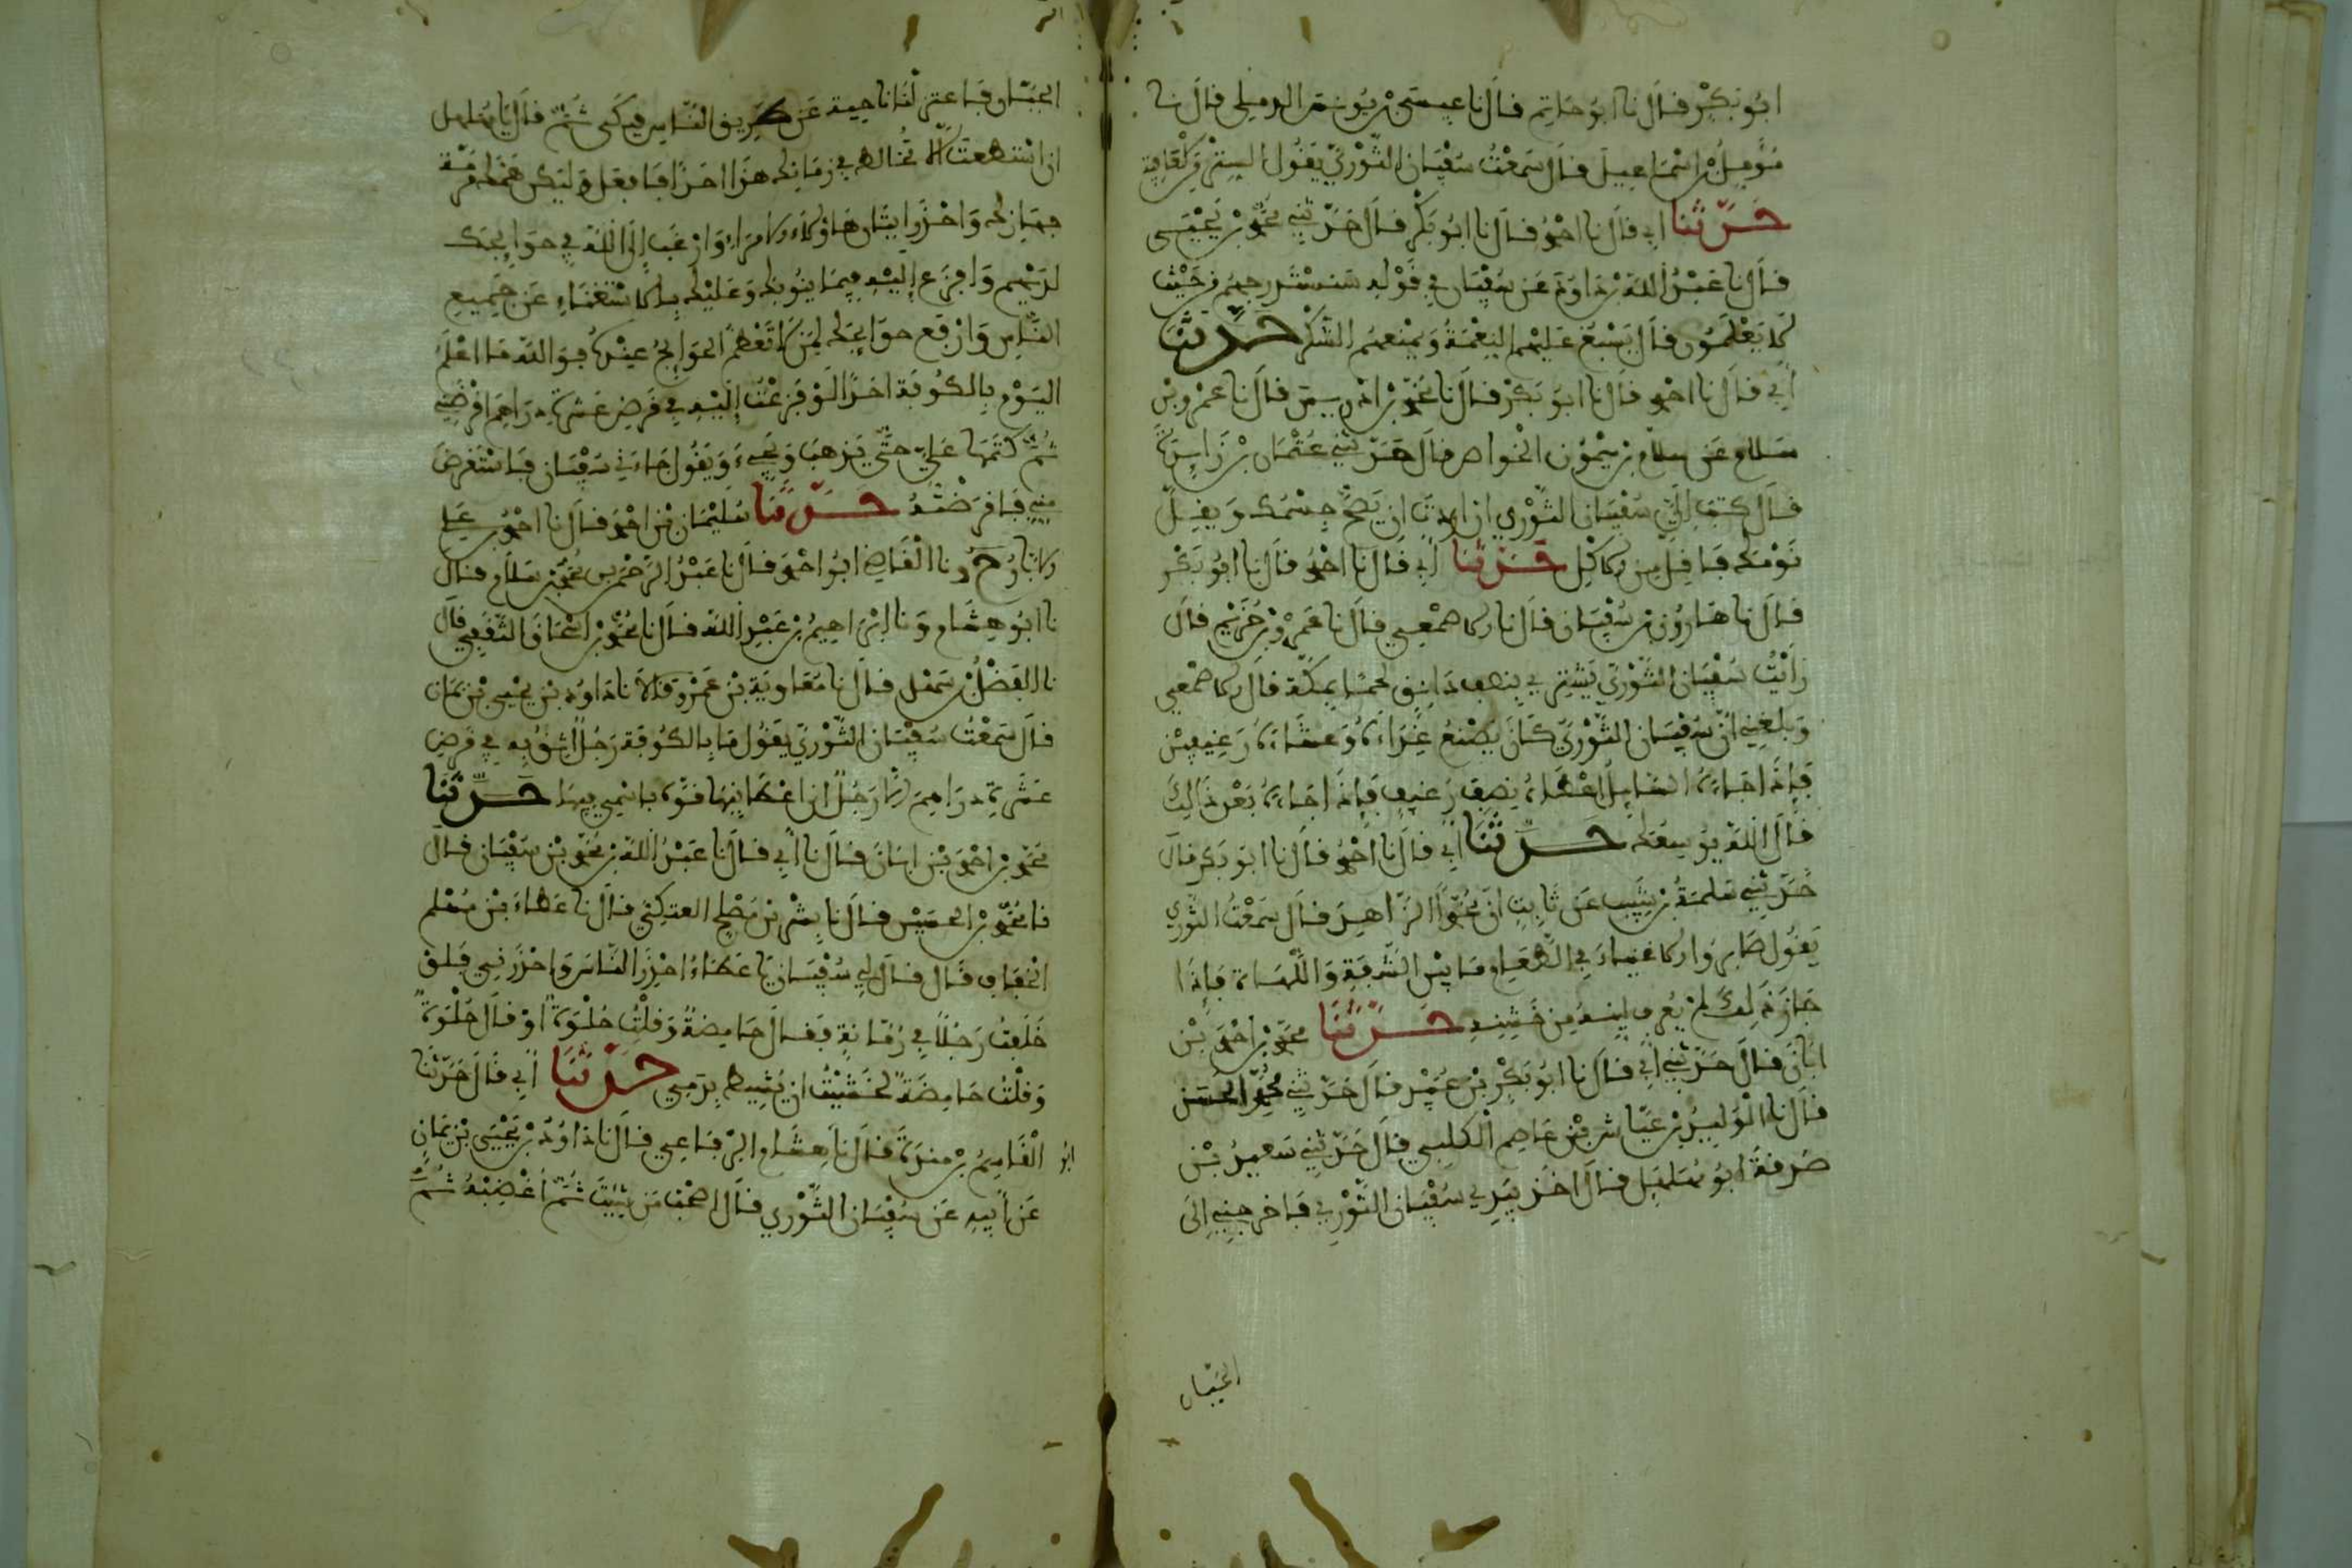 ابُو بَكْر فَالَ نا ابُو حَاتِم فَالَ نا عِيسَى بْن يُونسَ الرملي فال نا
مُؤَمِّلُ بْن اِسْمَاعِيلَ فَالَ سَمعْتُ سُفْيَان الثَّوْرِيّ يَقُول السترُ مِنَ العَافِيَة
حَدَّثَنَا أبي فالَ نا احْمَدُ فَالَ نا ابُو بَكْر فَالَ حَدّثَنِي محَمَّد بْن يَحْيَى
فال نا عَبْدُ اللّه بْن دَاوُدَ عَن سُفْيَان فِي قَوْلِهِ سَنَسْتَدرِجهُم مِّن حَيْثُ
لَا يَعْلَمُون فالَ يُسْبغُ عَلَيْهِمُ النِعْمَةَ وَيَمْنَعهُم الشّكْرَ حَدَّثَنَا
أَبي فالَ نا احْمد فَالَ نا ابُو بَكْر فَالَ نا محَمَّد بْن ادْرِيس فالَ نا عَمْرو بْن
سَلام عَن سلام بْن مَيْمُون الخَواص فالَ حَدّثَنِي عُثْمَان بْن زَايِدَةَ
فَالَ كتب إِلَيَّ سُفْيَان الثّوْرِي إن اردت ان يَصِحَّ جِسْمُك وَيَقِلّ
نَوْمُك فَاقِلّ مِن الاكْل حَدّثَنَا أبي فَالَ نا احْمدُ فَالَ نا ابُو بَكْر
فَالَ نا هَارُون بْن سُفْيَان فَالَ نا الاصْمَعِي فالَ نا عَمرو بْن خُزَيْم فالَ
رَأَيْتُ سُفْيَان الثَّوْرِيّ يَشْتَرِي بِنِصْف دَانِق لَحْمًا بِمَكّة فَالَ الاصْمَعِي
وَبَلَغَنِي أَنّ سُفْيَان الثّوْرِيّ كَانَ يَصْنَعُ غَدَاءَهُ وَعَشَاءَهُ رَغِيفَيْن
فَإِذَا جَاءَهُ السَّايِلُ أَعْطَاهُ نِصْفَ رَغِيفٍ فَإِذَا جَاءَهُ بَعْدَ ذَالِكَ
فَالَ اللّه يُوَسِّعُ لَكَ حَدَّثَنَا أبي فالَ نا احْمَدُ فَالَ نا ابُو بَكْر فالَ
حَدَّثَنِي سَلَمَةُ بْن شَبِيب عَن ثَابِتٍ انَّ محَمَّدًا الزّاهِدَ فَالَ سَمِعْتُ الثّوْري
يَقُول صَابِرُوا الاغْنِيَاءَ فِي الطّعَام مَا بَيْن الشّفَةِ وَاللّهَاة فَإِذَا
جَازَ ذَلِكَ لَمْ يُعْرَف لَيِّنهُ مِن خَشِنِهِ حَدّثَنَا محَمَّد بْن احْمَد بْن
ابَانَ فَالَ حَدّثَنِي أَبي فَالَ نا ابُو بَكْرِ بْن عُبَيْد فالَ حَدّثَنِي محَمَّد بن الحُسَيْن
فَالَ نا الْوَلِيدُ بْن عَيّاش بْن عَاصِم الْكَلبي فالَ حَدّثَنِي سَعِيدُ بْن
صَدَقَةَ ابُو مُهَلْهِل فالَ اخَذ بيَدِي سُفْيَان الثَّوْرِي فَاخْرَجَنِي الَى
الجَبَّان
الجَبَّان فَاعْتَزَلْنَا نَاحِيَة عَن طَرِيق النّاس فَبَكَى ثُمّ فالَ يَا مُهَلْهِل
ان اسْتَطَعْتَ الَّا تُخَالِطَ فِي زَمَانِكَ هَذَا احَدًا فَافْعَلْ وَلْيَكُن هَمّكَ مَرَمَّة
جهَازِكَ وَاحْذَر إتْيَان هَاؤُلَاء الامَرَاءِ وَارْغَب إِلَى اللَّه فِي حَوَايِجِك
لَدَيْهِم وَافزَع إِلَيْهِ فِيمَا يَنُوبُكَ وَعَلَيْكَ بِالاسْتِغْنَاءِ عَن جَمِيعِ
النَّاس وَارْفَع حوَايجَكَ لِمَن لَا تَعْظمُ الحَوَايِجُ عِنْدَهُ فوَاللّه مَا اعْلَمُ
اليَوْم بِالكُوفَة احَدًا لَوْ فَزِعْتُ إِلَيْهِ فِي قَرضِ عَشرَةِ دَرَاهِمَ اقْرَضَنِي
ثُمَّ كَتَمَهَا عَلَيَّ حَتّى يَذهَبَ وَيَجِيءَ وَيَقُول جَاءَنِي سُفْيَان فَاسْتَقرَضَ
مِنِّي فَاقرَضْتُهُ حَدَّثَنَا سُلَيْمَان بْن احْمَد فَالَ نا احْمَدُ بن عَلي
الابَّارُ ح ونا الْقَاضِي ابُو احْمَد فَالَ نا عَبْدُ الرّحْمَن بن محَمَّد بْن سَلام فال
نا ابُو هِشَام وَنا اِبْرَاهِيمُ بْن عَبْدِ اللّه فَالَ نا محَمَّد بْن اسْحَاق الثّقَفي فالَ
نا الفَضْلُ بْن سَهْل فَالَ نا مُعَاوِيَة بْن عَمْرو فَالَا نا دَاوُد بْن يَحْيَى بْن يَمَان
فالَ سَمعْتُ سُفْيَان الثّوْرِيّ يَقُول مَا بِالكُوفَة رَجُلٌ أَثِقُ بِهِ فِي قَرضِ
عَشَرَةِ دَرَاهِمَ إلَّا رَجُلٌ ان اعْطَانِيهَا نوّه باسْمي فِيهَا حَدَّثَنَا
محَمّد بْن احْمَد بْن ابَانَ فَالَ نا أَبِي فَالَ نا عَبْدُ اللّه بْن محَمّد بْن سُفْيَان فالَ
نا محَمّد بْن الحسَيْن فَالَ نا بِشْر بْن مُصْلح العتكِيّ فالَ نا عَطاء بْن مُسْلم
الخَفَّاف فَالَ فالَ لِي سُفْيَان يَا عَطَاءُ احْذَر النّاسَ وَاحْذَرْنِي فَلَوْ
خَالَفْت رَجُلًا فِي رُمّانَةٍ فَقَالَ حَامِضَةٌ وَقُلْتُ حُلْوَةٌ اوْ فالَ حُلْوَةٌ
وَقُلْتُ حَامِضَةٌ لخَشِيْتُ ان يُشِيطَ بِدَمي حَدَّثَنَا أَبِي فَالَ حَدّثَنَا
ابُو الْقَاسِمُ بْن مندَة فَالَ نا هِشَام الرّفَاعِي فَالَ نا دَاوُدُ بْن يَحْيَى بْن يَمَانٍ
عَن أَبِيهِ عَن سُفْيَان الثّوْرِي فَالَ اصْحَب مَن شِئْتَ ثُمّ أَغْضِبْهُ ثُمَّ